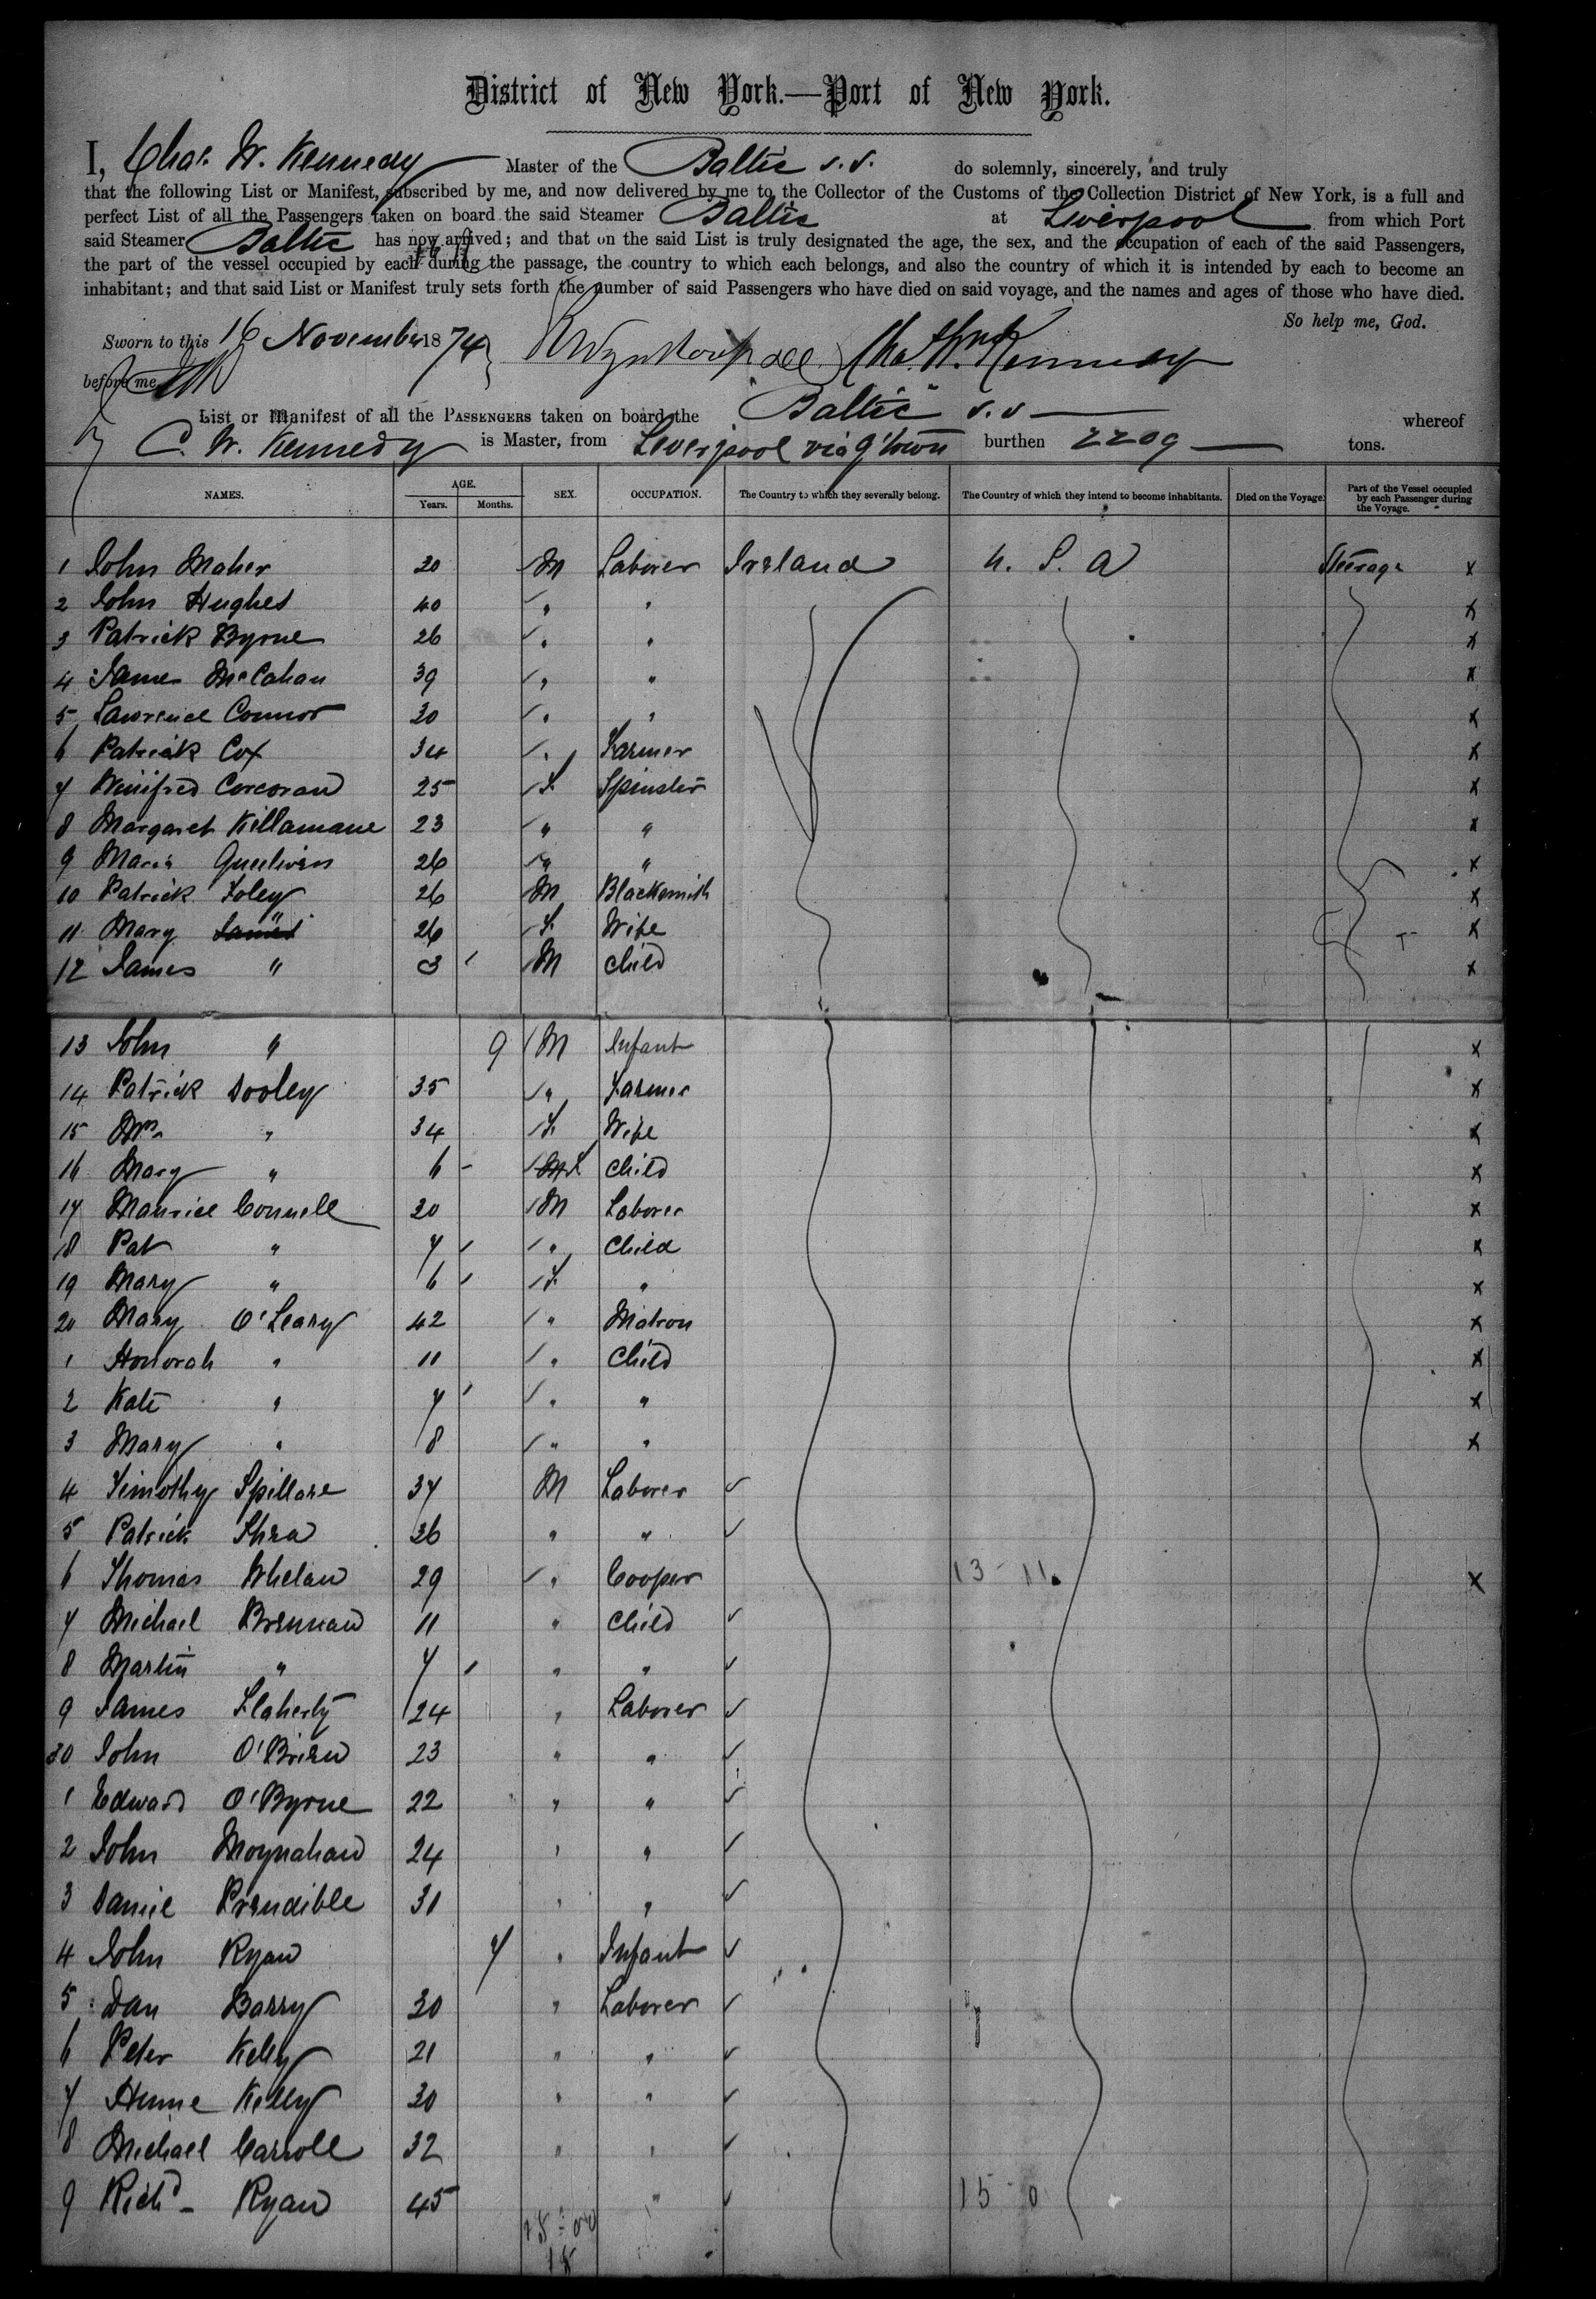 District of New York.—Port of New York.
I, Chas. W. Kennedy Master of the Baltic s.s. do solemnly, sincerely, and truly
that the following List or Manifest, subscribed by me, and now delivered by me to the Collector of the Customs of the Collection District of New York, is a full and
perfect List of all the Passengers taken on board the said Steamer Baltic at Liverpool from which Port
said Steamer Baltic has now arrived; and that on the said List is truly designated the age, the sex, and the occupation of each of the said Passengers,
the part of the vessel occupied by each during the passage, the country to which each belongs, and also the country of which it is intended by each to become an
inhabitant; and that said List or Manifest truly sets forth the number of said Passengers who have died on said voyage, and the names and ages of those who have died.
So help me, God.
Sworn to this 16 November 1874 Chas. W. Kennedy
before me
List or Manifest of all the PASSENGERS taken on board the "Baltic" s.s whereof
C. W. Kennedy is Master, from Liverpool via Q'town burthen 2209 tons.
NAMES. AGE. Years. Months. SEX. OCCUPATION. The Country to which they severally belong. The Country of which they intend to become inhabitants. Died on the Voyage. Part of the Vessel occupied by each Passenger during the Voyage.
1 John Maher 20 M Laborer Ireland U. S. A Steerage x
2 John Hughes 40 " " x
3 Patrick Byrne 26 " " x
4 James McCahan 39 " " x
5 Lawrence Connor 20 " " x
6 Patrick Cox 34 " Farmer x
7 Winifred Corcoran 25 F Spinster x
8 Margaret Killamane 23 " " x
9 Maria 26 " " x
10 Patrick Foley 26 M Blacksmith x
11 Mary " 26 F Wife x
12 James " 3 M Child x
13 John " 9 M Infant x
14 Patrick Dooley 35 " Farmer x
15 Mrs " 34 F Wife x
16 Mary " 6 F Child x
17 Maurice Connell 20 M Laborer x
18 Pat " 7 " Child x
19 Mary " 6 F " x
20 Mary O'Leary 42 " Matron x
1 Honorah " 11 " Child x
2 Kate " 7 " " x
3 Mary " 8 " " x
4 Timothy Spillane 37 M Laborer
5 Patrick Shea 26 " "
6 Thomas Whelan 29 " Cooper 13 - 11 x
7 Michael Brennan 11 " Child
8 Martin " 7 " "
9 James Flaherty 24 " Laborer
30 John O'Brien 23 " "
1 Edward O'Byrne 22 " "
2 John Moynahan 24 " "
3 Daniel Prendible 31 " "
4 John Ryan 7 " Infant
5 Dan Barry 20 " Laborer
6 Peter Kelly 21 " "
7 Kelly 20 " "
8 Michael Carroll 32 " "
9 Richd Ryan 45 " 15 - 0